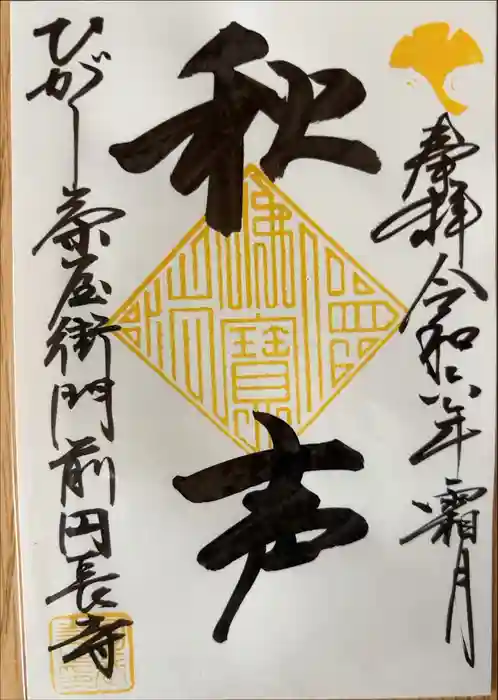 奉拝 令和六年 霜月
秋声
佛法僧寶
ひがし茶屋街門前円長寺